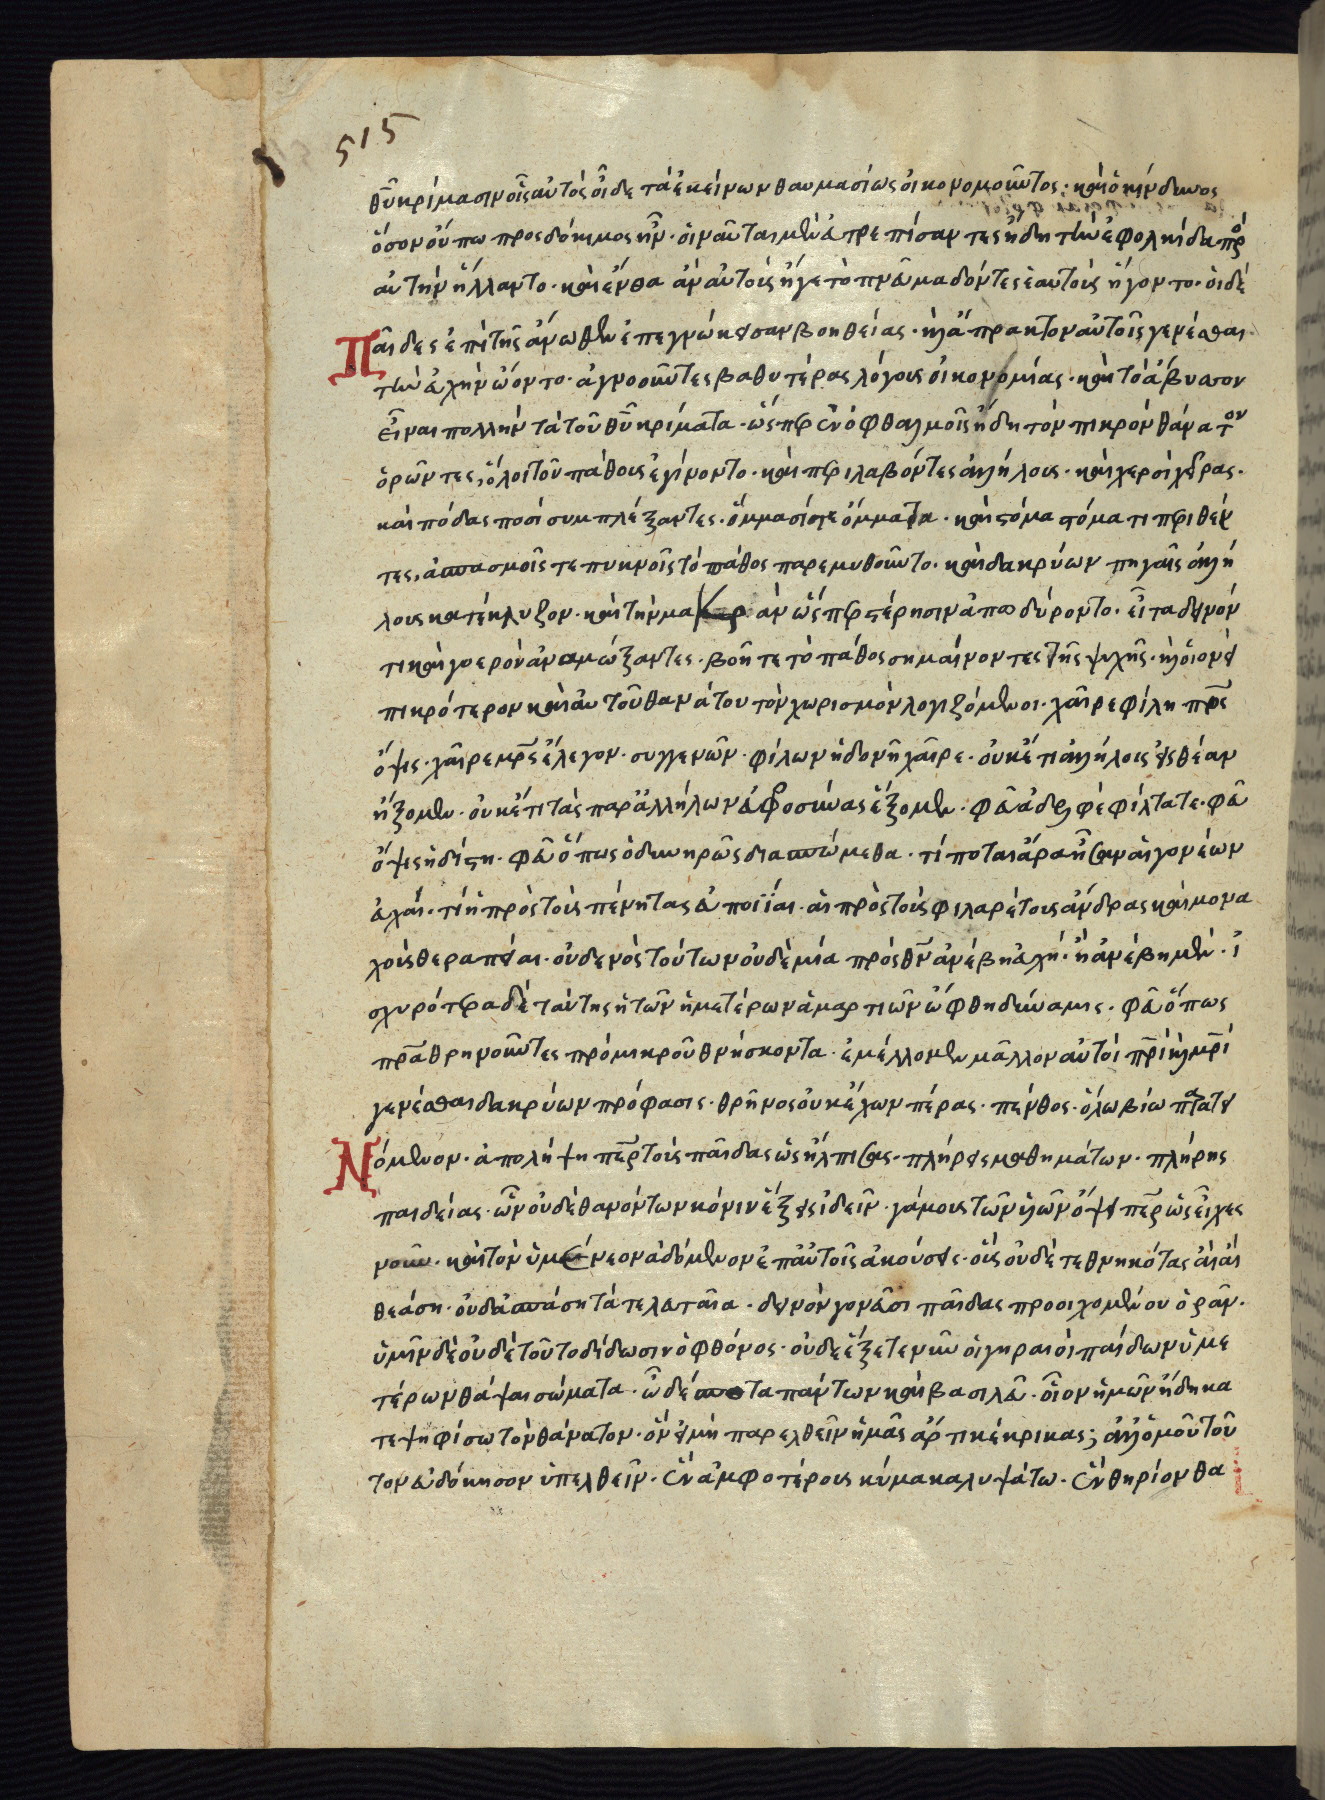 515
θῦ κρίμασιν οἷς αὐτὸς οἶδε τὰ ἐκείνων θαυμασίως οἰκονομοῦντος· καὶ ὁ κίνδυνος
ὅσον οὔπω προσδόκιμος ἦν. οἱ ναῦται μὲν εὐτρεπίσαντες ἤδη τὴν ἐφολκίδα πρὸς
αὐτὴν ἥλλαντο. καὶ ἔνθα ἂν αὐτοὺς ἦγε τὸ πνεῦμα δόντες ἑαυτοὺς ἤγοντο. οἱ δὲ
Παῖδες ἐπὶ τῆς ἄνωθεν ἐπεγνώκεισαν βοηθείας. καὶ ἄπρακτον αὐτοῖς γενέσθαι
τὴν εὐχὴν ὤοντο. ἀγνοοῦντες βαθυτέρας λόγους οἰκονομίας. καὶ τὸ ἄβυσσον
εἶναι πολλὴν τὰ τοῦ θῦ κρίματα. ὥσπερ ἐν ὀφθαλμοῖς ἤδη τὸν πικρὸν θάνατον
ὁρῶντες, ὅλοι τοῦ πάθους ἐγίνοντο. καὶ περιλαβόντες ἀλλήλους. καὶ χερσὶ χεῖρας.
καὶ πόδας ποσὶ συμπλέξαντες. ὄμμασί τε ὄμματα. καὶ στόμα στόματι περιθέν
τες, ἀσπασμοῖς τε πυκνοῖς τὸ πάθος παρεμυθοῦντο. καὶ δακρύων πηγαῖς ἀλλή
λους κατέκλυζον. καὶ τὴν μακρὰν ὥσπερ στέρησιν ἀπωδύροντο. εἶτα δεινόν
τι καὶ γοερὸν ἀνοιμώξαντες. βοῇ τε τὸ πάθος σημαίνοντες τῆς ψυχῆς. καὶ οἱονεὶ
πικρότερον καὶ αὐτοῦ θανάτου τὸν χωρισμὸν λογιζόμενοι. χαῖρε φίλη πρς
ὄψις. χαῖρε μρς ἔλεγον. συγγενῶν. φίλων ἡδονὴ χαῖρε. οὐκέτι ἀλλήλοις εἰς θέαν
ἥξομεν. οὐκέτι τὰς παρ' ἀλλήλων εὐφροσύνας ἕξομεν. φεῦ ἀδελφὲ φίλτατε. φεῦ
ὄψις ἡδίστη. φεῦ ὅπως ὀδυνηρῶς διασπώμεθα. τί ποτ' αἱ ἄρα ἦσαν αἱ γονέων
εὐχαί. τί ἡ πρὸς τοὺς πένητας εὐποιΐαι. αἱ πρὸς τοὺς φιλαρέτους ἄνδρας καὶ μονα
χοὺς θεραπεῖαι. οὐδενὸς τούτων οὐδεμία πρὸς θν ἀνέβη εὐχή. ἢ ἀνέβη μέν. ἰ
σχυρότερα δὲ ταύτης ἡ τῶν ἡμετέρων ἁμαρτιῶν ὤφθη δύναμις. φεῦ ὅπως
πρα θρηνοῦντες πρὸ μικροῦ θνήσκοντα. ἐμέλλομεν μᾶλλον αὐτοὶ πρὶ καὶ μρὶ
γενέσθαι δακρύων πρόφασις. θρῆνος οὐκ ἔχων πέρας. πένθος. ὅλω βίω παρατει
Νόμενον. ἀπολήψη περ τοὺς παῖδας ὡς ἤλπισας. πλήρεις μαθημάτων. πλήρης
παιδείας. ὧν οὐδὲ θανόντων κόνιν ἕξεις ἰδεῖν. γάμους τῶν υἱῶν ὄψει περ ὡς εἶχες
νοῦν. καὶ τὸν ὑμέναιον ἀδόμενον ἐπ' αὐτοῖς ἀκούσεις. οἷς οὐδὲ τεθνηκότας αἲ αἲ
θεάση. οὐδ' ἀσπάση τὰ τελευταῖα. δεινὸν γονεῦσι παῖδας προοιχομένου ὁρᾶν.
ὑμῖν δὲ οὐδὲ τοῦτο δίδωσιν ὁ φθόνος. οὐδὲ ἕξετε νῦν οἱ γηραιοὶ παίδων ὑμε
τέρων θάψαι σώματα. ὦ δέσποτα πάντων καὶ βασιλεῦ. οἷον ἡμῶν ἤδη κα
τεψηφίσω τὸν θάνατον. ὃν εἰ μὴ παρελθεῖν ἡμᾶς ἄρτι κέκρικας; ἀλλ' ὁμοῦ τοῦ
τον εὐδόκησον ὑπελθεῖν. ἓν ἀμφοτέρους κῦμα καλυψάτω. ἓν θηρίον θα